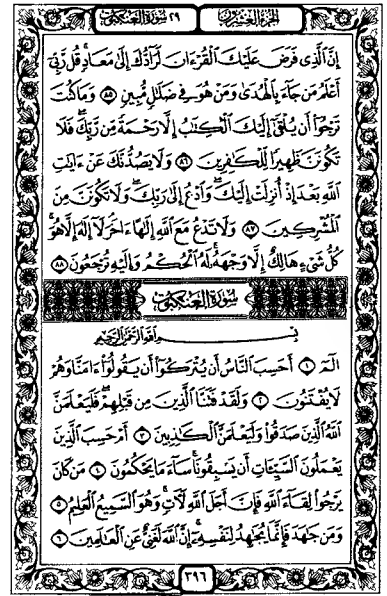 الجزء العشرون
٢٩ سورة العنكبوت
إِنَّ الَّذِي فَرَضَ عَلَيْكَ الْقُرْءَانَ لَرَادُّكَ إِلَىٰ مَعَادٍ ۚ قُل رَّبِّي
أَعْلَمُ مَن جَاءَ بِالْهُدَىٰ وَمَنْ هُوَ فِي ضَلَالٍ مُّبِينٍ ٨٥ وَمَا كُنتَ
تَرْجُوا أَن يُلْقَىٰ إِلَيْكَ الْكِتَابُ إِلَّا رَحْمَةً مِّن رَّبِّكَ ۖ فَلَا
تَكُونَنَّ ظَهِيرًا لِّلْكَافِرِينَ ٨٦ وَلَا يَصُدُّنَّكَ عَنْ ءَايَاتِ
اللَّهِ بَعْدَ إِذْ أُنزِلَتْ إِلَيْكَ ۖ وَادْعُ إِلَىٰ رَبِّكَ ۖ وَلَا تَكُونَنَّ مِنَ
الْمُشْرِكِينَ ٨٧ وَلَا تَدْعُ مَعَ اللَّهِ إِلَٰهًا ءَاخَرَ ۘ لَا إِلَٰهَ إِلَّا هُوَ ۚ
كُلُّ شَيْءٍ هَالِكٌ إِلَّا وَجْهَهُ ۚ لَهُ الْحُكْمُ وَإِلَيْهِ تُرْجَعُونَ ٨٨
سورة العنكبوت
بِسْمِ اللَّهِ الرَّحْمَٰنِ الرَّحِيمِ
الم ١ أَحَسِبَ النَّاسُ أَن يُتْرَكُوا أَن يَقُولُوا ءَامَنَّا وَهُمْ
لَا يُفْتَنُونَ ٢ وَلَقَدْ فَتَنَّا الَّذِينَ مِن قَبْلِهِمْ ۖ فَلَيَعْلَمَنَّ
اللَّهُ الَّذِينَ صَدَقُوا وَلَيَعْلَمَنَّ الْكَاذِبِينَ ٣ أَمْ حَسِبَ الَّذِينَ
يَعْمَلُونَ السَّيِّئَاتِ أَن يَسْبِقُونَا ۚ سَاءَ مَا يَحْكُمُونَ ٤ مَن كَانَ
يَرْجُوا لِقَاءَ اللَّهِ فَإِنَّ أَجَلَ اللَّهِ لَآتٍ ۚ وَهُوَ السَّمِيعُ الْعَلِيمُ ٥
وَمَن جَاهَدَ فَإِنَّمَا يُجَاهِدُ لِنَفْسِهِ ۚ إِنَّ اللَّهَ لَغَنِيٌّ عَنِ الْعَالَمِينَ ٦
٣٩٦